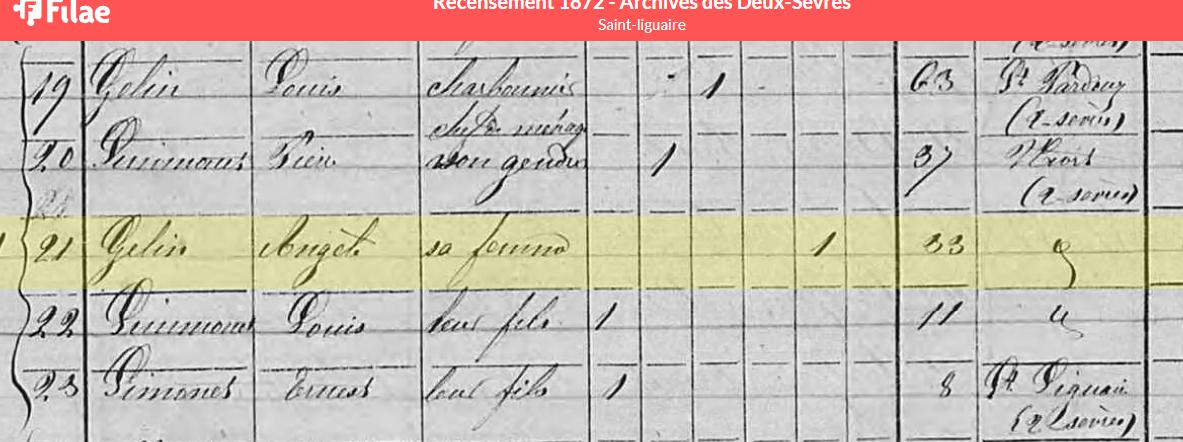 Filae
Recensement 1872 - Archives des Deux-Sèvres
Saint-liguaire
(2-sevres)
19 Gelin Louis charbonnier 1 63 St Pardoux
chef de ménage (2-sevres)
20 Pierre son gendre 1 37
(2-sevres)
1 21 Gelin Angèle sa femme 1 33
22 Louis leur fils 1 11
23 Simonet Ernest leur fils 1 8 St Liguaire
(2-sevres)